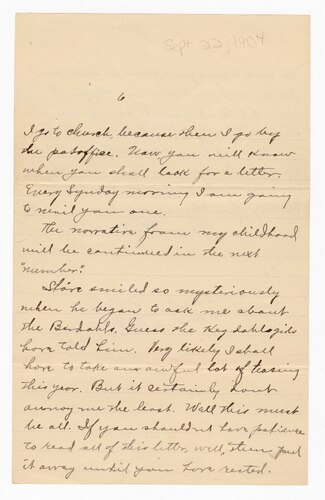 Sept 22, 1904
6
I go to church, because then I go by
the postoffice. Now you will know
when you shall look for a letter.
Every Synday morning I am going
to mail you one.
The narrative from my childhood
will be continued in the next
"number."
Store smiled so mysteriously
when he began to ask me about
the Birdahls. Guess the
have told him. Very likely I shall
have to take an awful lot of teasing
this year. But it certainly dont
annoy me the least. Well this must
be all. If you shouldnt have patience
to read all of this letter, well, then put
it away until you have rested.